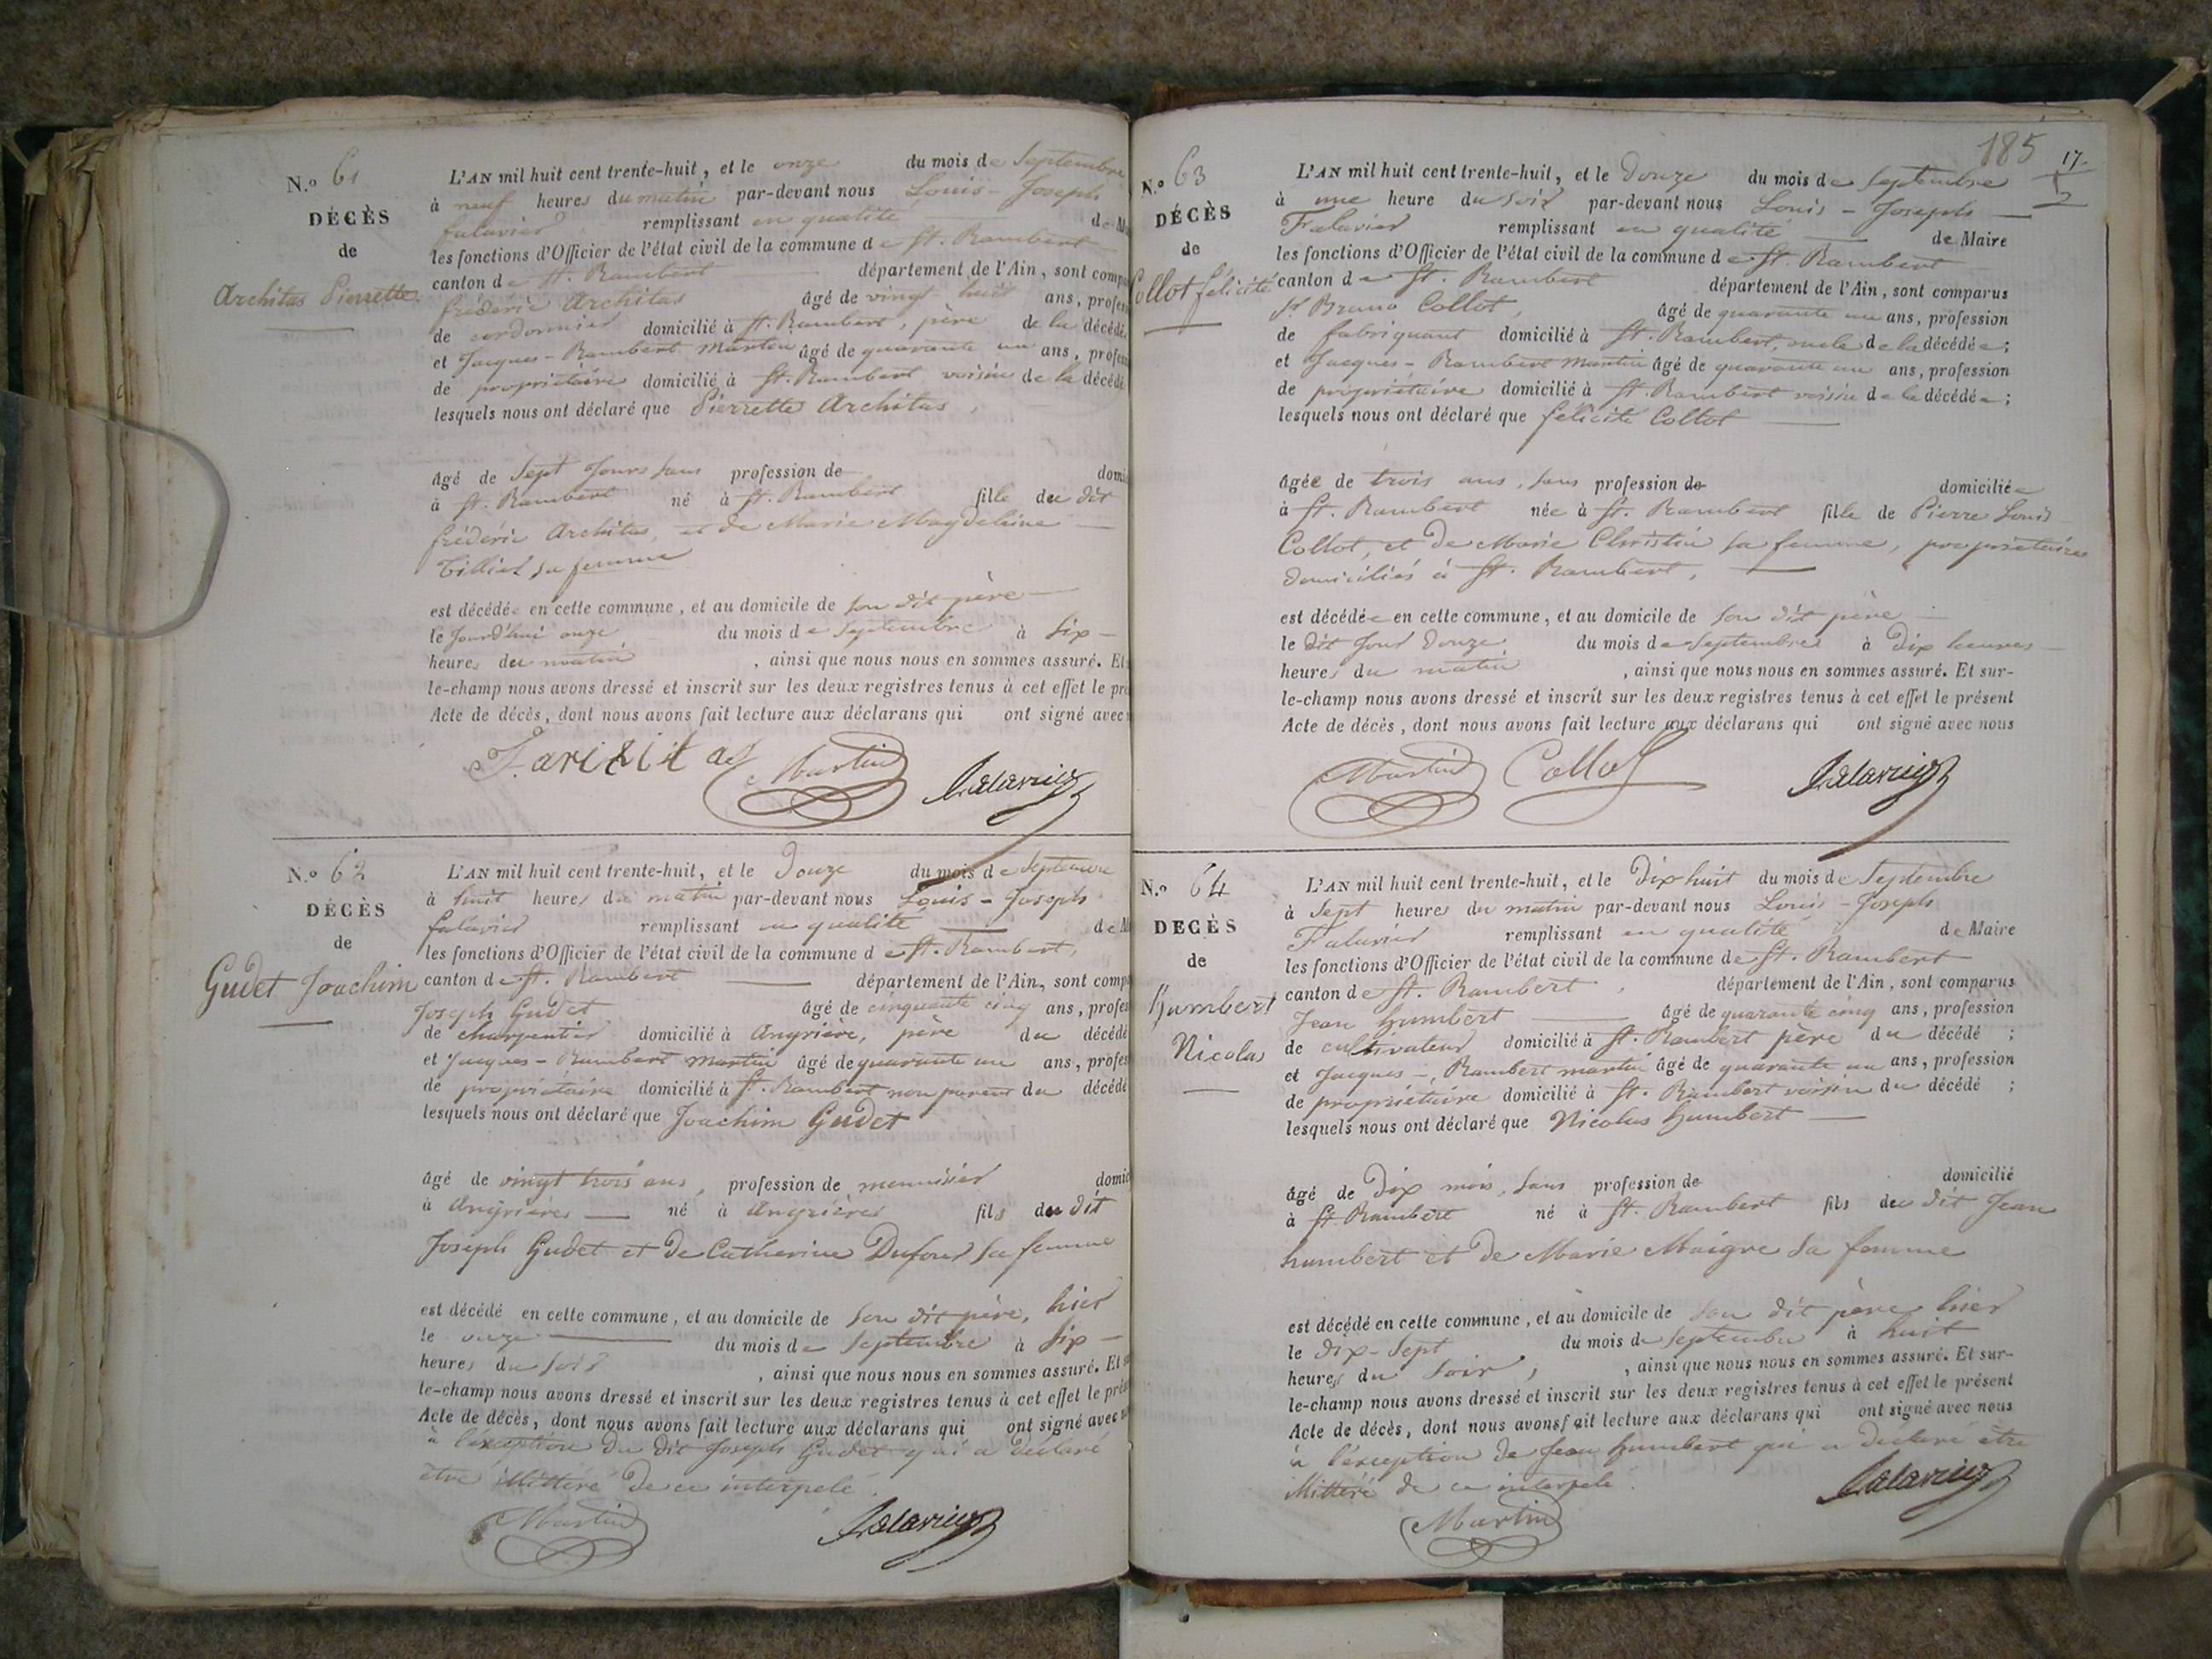 N.o 61
DÉCÈS
de
Architas Pierrette
L'AN mil huit cent trente-huit, et le onze du mois de Septembre
à neuf heures du matin par-devant nous Louis - Joseph
falavier remplissant en qualité de
les fonctions d'Officier de l'état civil de la commune de St. Rambert
canton de St. Rambert département de l'Ain, sont comp
frédéric Architas âgé de vingt huit ans, profes
de cordonnier domicilié à St. Rambert, père de la décédé
et Jacques - Rambert Martin âgé de quarante un ans, profes
de propriétaire domicilié à St. Rambert voisin de la décédé
lesquels nous ont déclaré que Pierrette Architas,
âgé de Sept Jours sans profession de domi
à St. Rambert né à St. Rambert fille du dit
frédéric Architas, et de Marie Magdeleine
Billiet sa femme
est décédée en cette commune, et au domicile de son dit père
le Jourd'hui onze du mois de Septembre à six
heures du matin , ainsi que nous nous en sommes assuré. Et
le-champ nous avons dressé et inscrit sur les deux registres tenus à cet effet le pr
Acte de décès, dont nous avons fait lecture aux déclarans qui ont signé avec
Martin falavier
N.o 62
DÉCÈS
de
Gudet Joachim
L'AN mil huit cent trente-huit, et le Douze du mois de Septembre
à huit heures du matin par-devant nous Louis - Joseph
falavier remplissant en qualité de
les fonctions d'Officier de l'état civil de la commune de St. Rambert,
canton de St. Rambert département de l'Ain, sont comp
Joseph Gudet âgé de cinquante cinq ans, profes
de charpentier domicilié à Angrière, père du décédé
et Jacques - Rambert Martin âgé de quarante un ans, profes
de propriétaire domicilié à St. Rambert non parent du décédé
lesquels nous ont déclaré que Joachim Gudet
âgé de vingt trois ans, profession de menuisier domic
à Angrières né à Angrières fils du dit
Joseph Gudet et de Catherine Dufour sa femme
est décédé en cette commune, et au domicile de son dit père, hier
le onze du mois de Septembre à six
heures du soir , ainsi que nous nous en sommes assuré. Et
le-champ nous avons dressé et inscrit sur les deux registres tenus à cet effet le prés
Acte de décès, dont nous avons fait lecture aux déclarans qui ont signé avec
à l'éxception du dit Joseph Gudet qui a déclaré
être illittéré de ce interpelé.
Martin falavier
185
17
N.o 63
DÉCÈS
de
Collot félicité
L'AN mil huit cent trente-huit, et le Douze du mois de Septembre
à une heure du soir par-devant nous Louis - Joseph
Falavier remplissant en qualité de Maire
les fonctions d'Officier de l'état civil de la commune de St. Rambert
canton de St. Rambert département de l'Ain, sont comparus
Sr Bruno Collot, âgé de quarante un ans, profession
de fabriquant domicilié à St. Rambert, oncle de la décédée;
et Jacques - Rambert Martin âgé de quarante un ans, profession
de propriétaire domicilié à St. Rambert voisin de la décédée;
lesquels nous ont déclaré que félicité Collot
âgée de trois ans, sans profession de domiciliée
à St. Rambert née à St. Rambert fille de Pierre Louis
Collot, et de Marie Christin sa femme, propriétaires
domiciliés à St. Rambert,
est décédée en cette commune, et au domicile de son dit père
le dit Jour Douze du mois de Septembre à Dix heures
heures du matin , ainsi que nous nous en sommes assuré. Et sur-
le-champ nous avons dressé et inscrit sur les deux registres tenus à cet effet le présent
Acte de décès, dont nous avons fait lecture aux déclarans qui ont signé avec nous
Martin Collot falavier
N.o 64
DECÈS
de
humbert
Nicolas
L'AN mil huit cent trente-huit, et le Dix huit du mois de Septembre
à Sept heures du matin par-devant nous Louis - Joseph
Falavier remplissant en qualité de Maire
les fonctions d'Officier de l'état civil de la commune de St. Rambert
canton de St. Rambert, département de l'Ain, sont comparus
Jean humbert âgé de quarante cinq ans, profession
de cultivateur domicilié à St. Rambert père du décédé ;
et Jacques - Rambert martin âgé de quarante un ans, profession
de propriétaire domicilié à St. Rambert voisin du décédé ;
lesquels nous ont déclaré que Nicolas humbert
âgé de Dix mois, sans profession de domicilié
à St Rambert né à St. Rambert fils du dit Jean
humbert et de Marie Maigre sa femme
est décédé en cette commune, et au domicile de son dit père hier
le dix-Sept du mois de Septembre à huit
heures du soir, , ainsi que nous nous en sommes assuré. Et sur-
le-champ nous avons dressé et inscrit sur les deux registres tenus à cet effet le présent
Acte de décès, dont nous avons fait lecture aux déclarans qui ont signé avec nous
à l'exception de Jean humbert qui a déclaré être
illittéré de ce interpelé.
Martin falavier